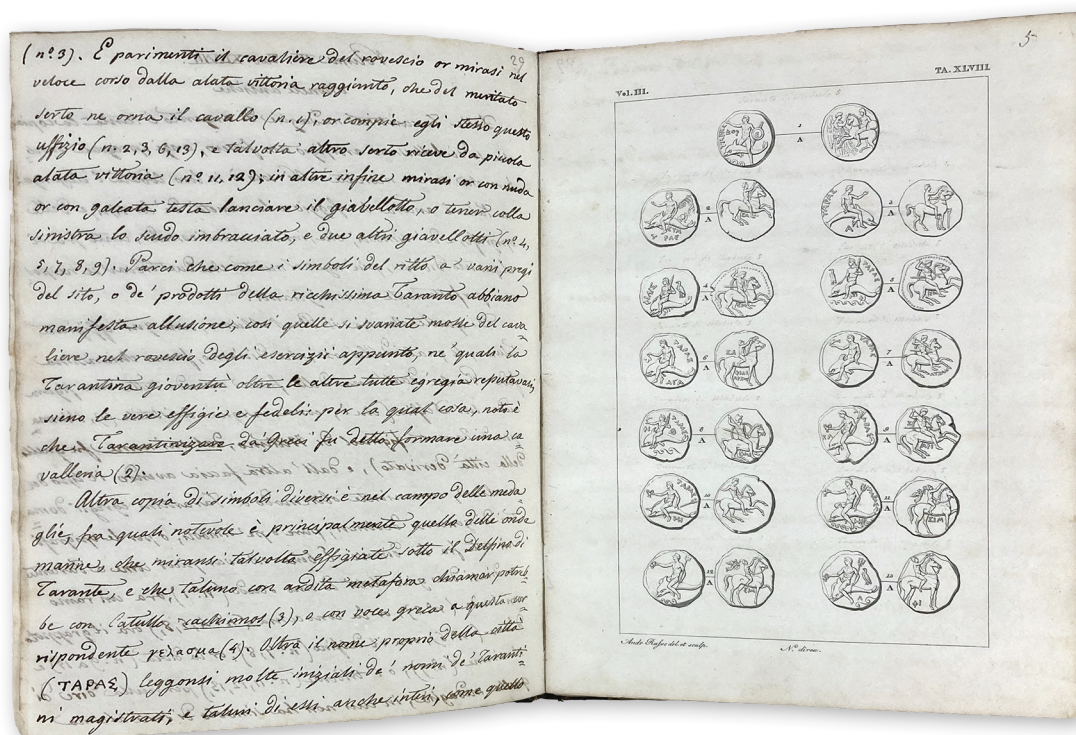 (nº 3). E parimenti il cavaliere del rovescio or mirasi nel
veloce corso dalla alata vittoria raggiunto, che del meritato
serto ne orna il cavallo (n. 1), or compie egli stesso questo
uffizio (n. 2, 3, 6, 13), e talvolta altro serto riceve da picciola
alata vittoria (nº 11, 12); in altre infine mirasi or con nuda
or con galeata testa lanciare il giavellotto, o tener colla
sinistra lo scudo imbracciato, e due altri giavellotti (nº 4,
5, 7, 8, 9). Parci che come i simboli del ritto a varii pregi
del sito, o de' prodotti della ricchissima Taranto abbiano
manifesta allusione, così quelle sì svariate mosse del cava
liere nel rovescio degli esercizii appunto, ne' quali la
Tarantina gioventù oltre le altre tutte egregia reputavasi,
sieno le vere effigie e fedeli; per la qual cosa, noto è
che Tarantinizare da' Greci fu detto formare una ca
valleria (2).
Altra copia di simboli diversi è nel campo delle meda
glie fra quali notevole è principalmente quella delle onde
marine, che miransi talvolta effigiate sotto il Delfino di
Tarante, e che taluno con ardita metafora chiamar potreb
be con Catullo cachinnos (3), o con voce greca a questa cor
rispondente γελασμα (4). Oltra il nome proprio della città
(ΤΑΡΑΣ) leggonsi molte iniziali de' nomi de' Taranti
ni magistrati, e taluni di essi anche interi, come quello
29
5
Vol. III.
TA. XLVIII.
1
A
2
A
3
A
4
A
5
A
6
A
7
A
8
A
9
A
10
A
11
A
12
A
13
A
ΤΑΡΑΣ
Andr. Russo del. et sculp.
N. direx.